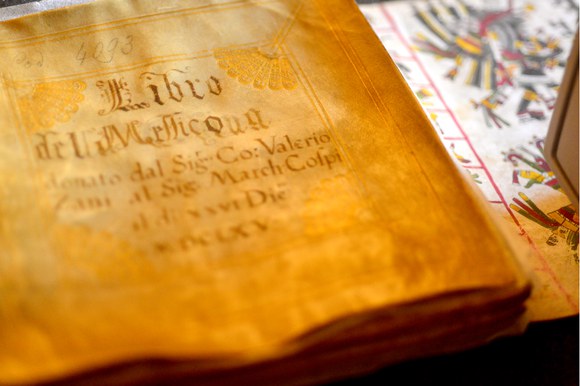 4093
Libro
del Messico
donato dal Sig: Co: Valerio
Zani al Sig: March: Cospi
il dì XXVI Dic
MDCLXV